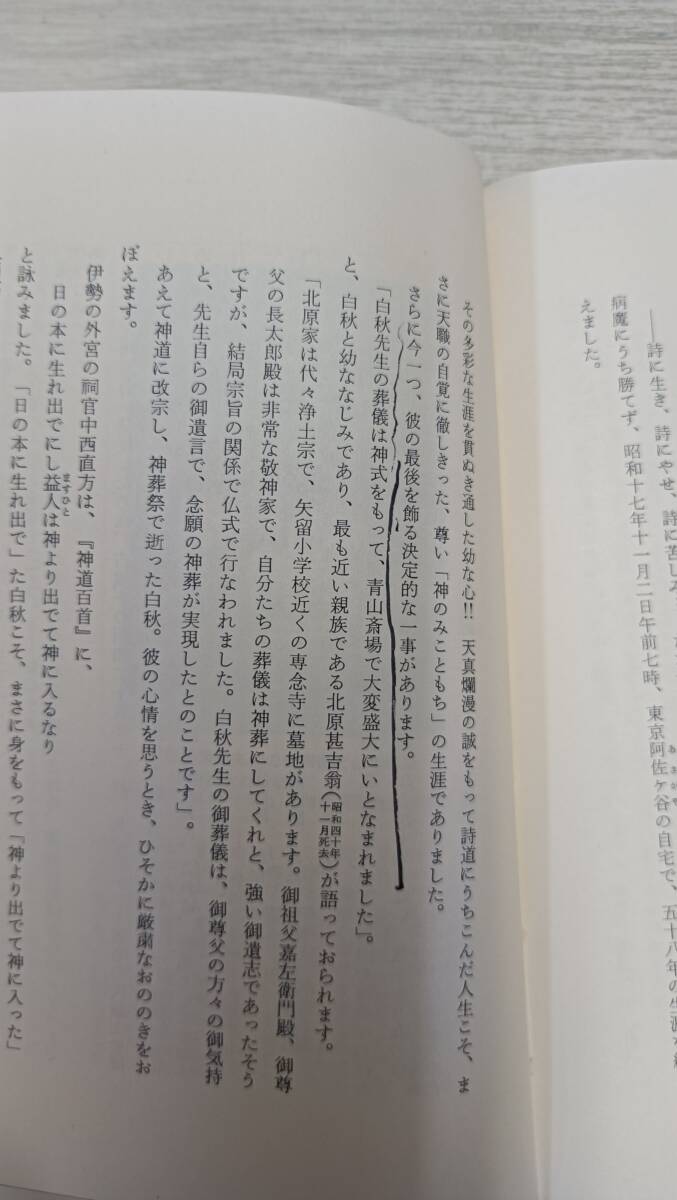 ――詩に生き、詩にやせ、詩に苦しみ
病魔にうち勝てず、昭和十七年十一月二日午前七時、東京阿佐ヶ谷の自宅で、五十八年の生涯を
えました。
その多彩な生涯を貫ぬき通した幼な心!! 天真爛漫の誠をもって詩道にうちこんだ人生こそ、ま
さに天職の自覚に徹しきった、尊い「神のみこともち」の生涯でありました。
さらに今一つ、彼の最後を飾る決定的な一事があります。
「白秋先生の葬儀は神式をもって、青山斎場で大変盛大にいとなまれました」。
と、白秋と幼ななじみであり、最も近い親族である北原甚吉翁(昭和四十年十一月死去)が語っておられます。
「北原家は代々浄土宗で、矢留小学校近くの専念寺に墓地があります。御祖父嘉左衛門殿、御尊
父の長太郎殿は非常な敬神家で、自分たちの葬儀は神葬にしてくれと、強い御遺志であったそう
ですが、結局宗旨の関係で仏式で行なわれました。白秋先生の御葬儀は、御尊父の方々の御気持
と、先生自らの御遺言で、念願の神葬が実現したとのことです」。
あえて神道に改宗し、神葬祭で逝った白秋。彼の心情を思うとき、ひそかに厳粛なおののきをお
ぼえます。
伊勢の外宮の祠官中西直方は、『神道百首』に、
日の本に生れ出でにし益人ますひとは神より出でて神に入るなり
と詠みました。「日の本に生れ出で」た白秋こそ、まさに身をもって「神より出でて神に入った」